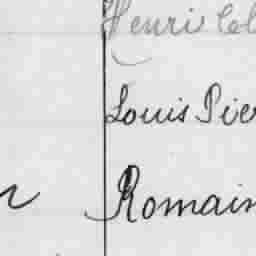 Henri
Louis Pier
Romain